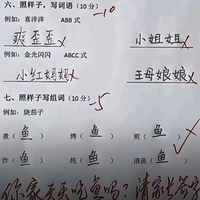 六、照样子，写词语（10分） -10
例如：喜洋洋 ABB 式
爽歪歪 小姐姐
例如：金光闪闪 ABCC 式
小红妈妈 王母娘娘
七、照样子写组词（10分） -5
例如：烧茄子
煮（鱼） 烤（鱼） 煎（鱼）
炸（鱼） 炖（鱼） 清蒸（鱼）
你家天天吃鱼吗？请家长签字